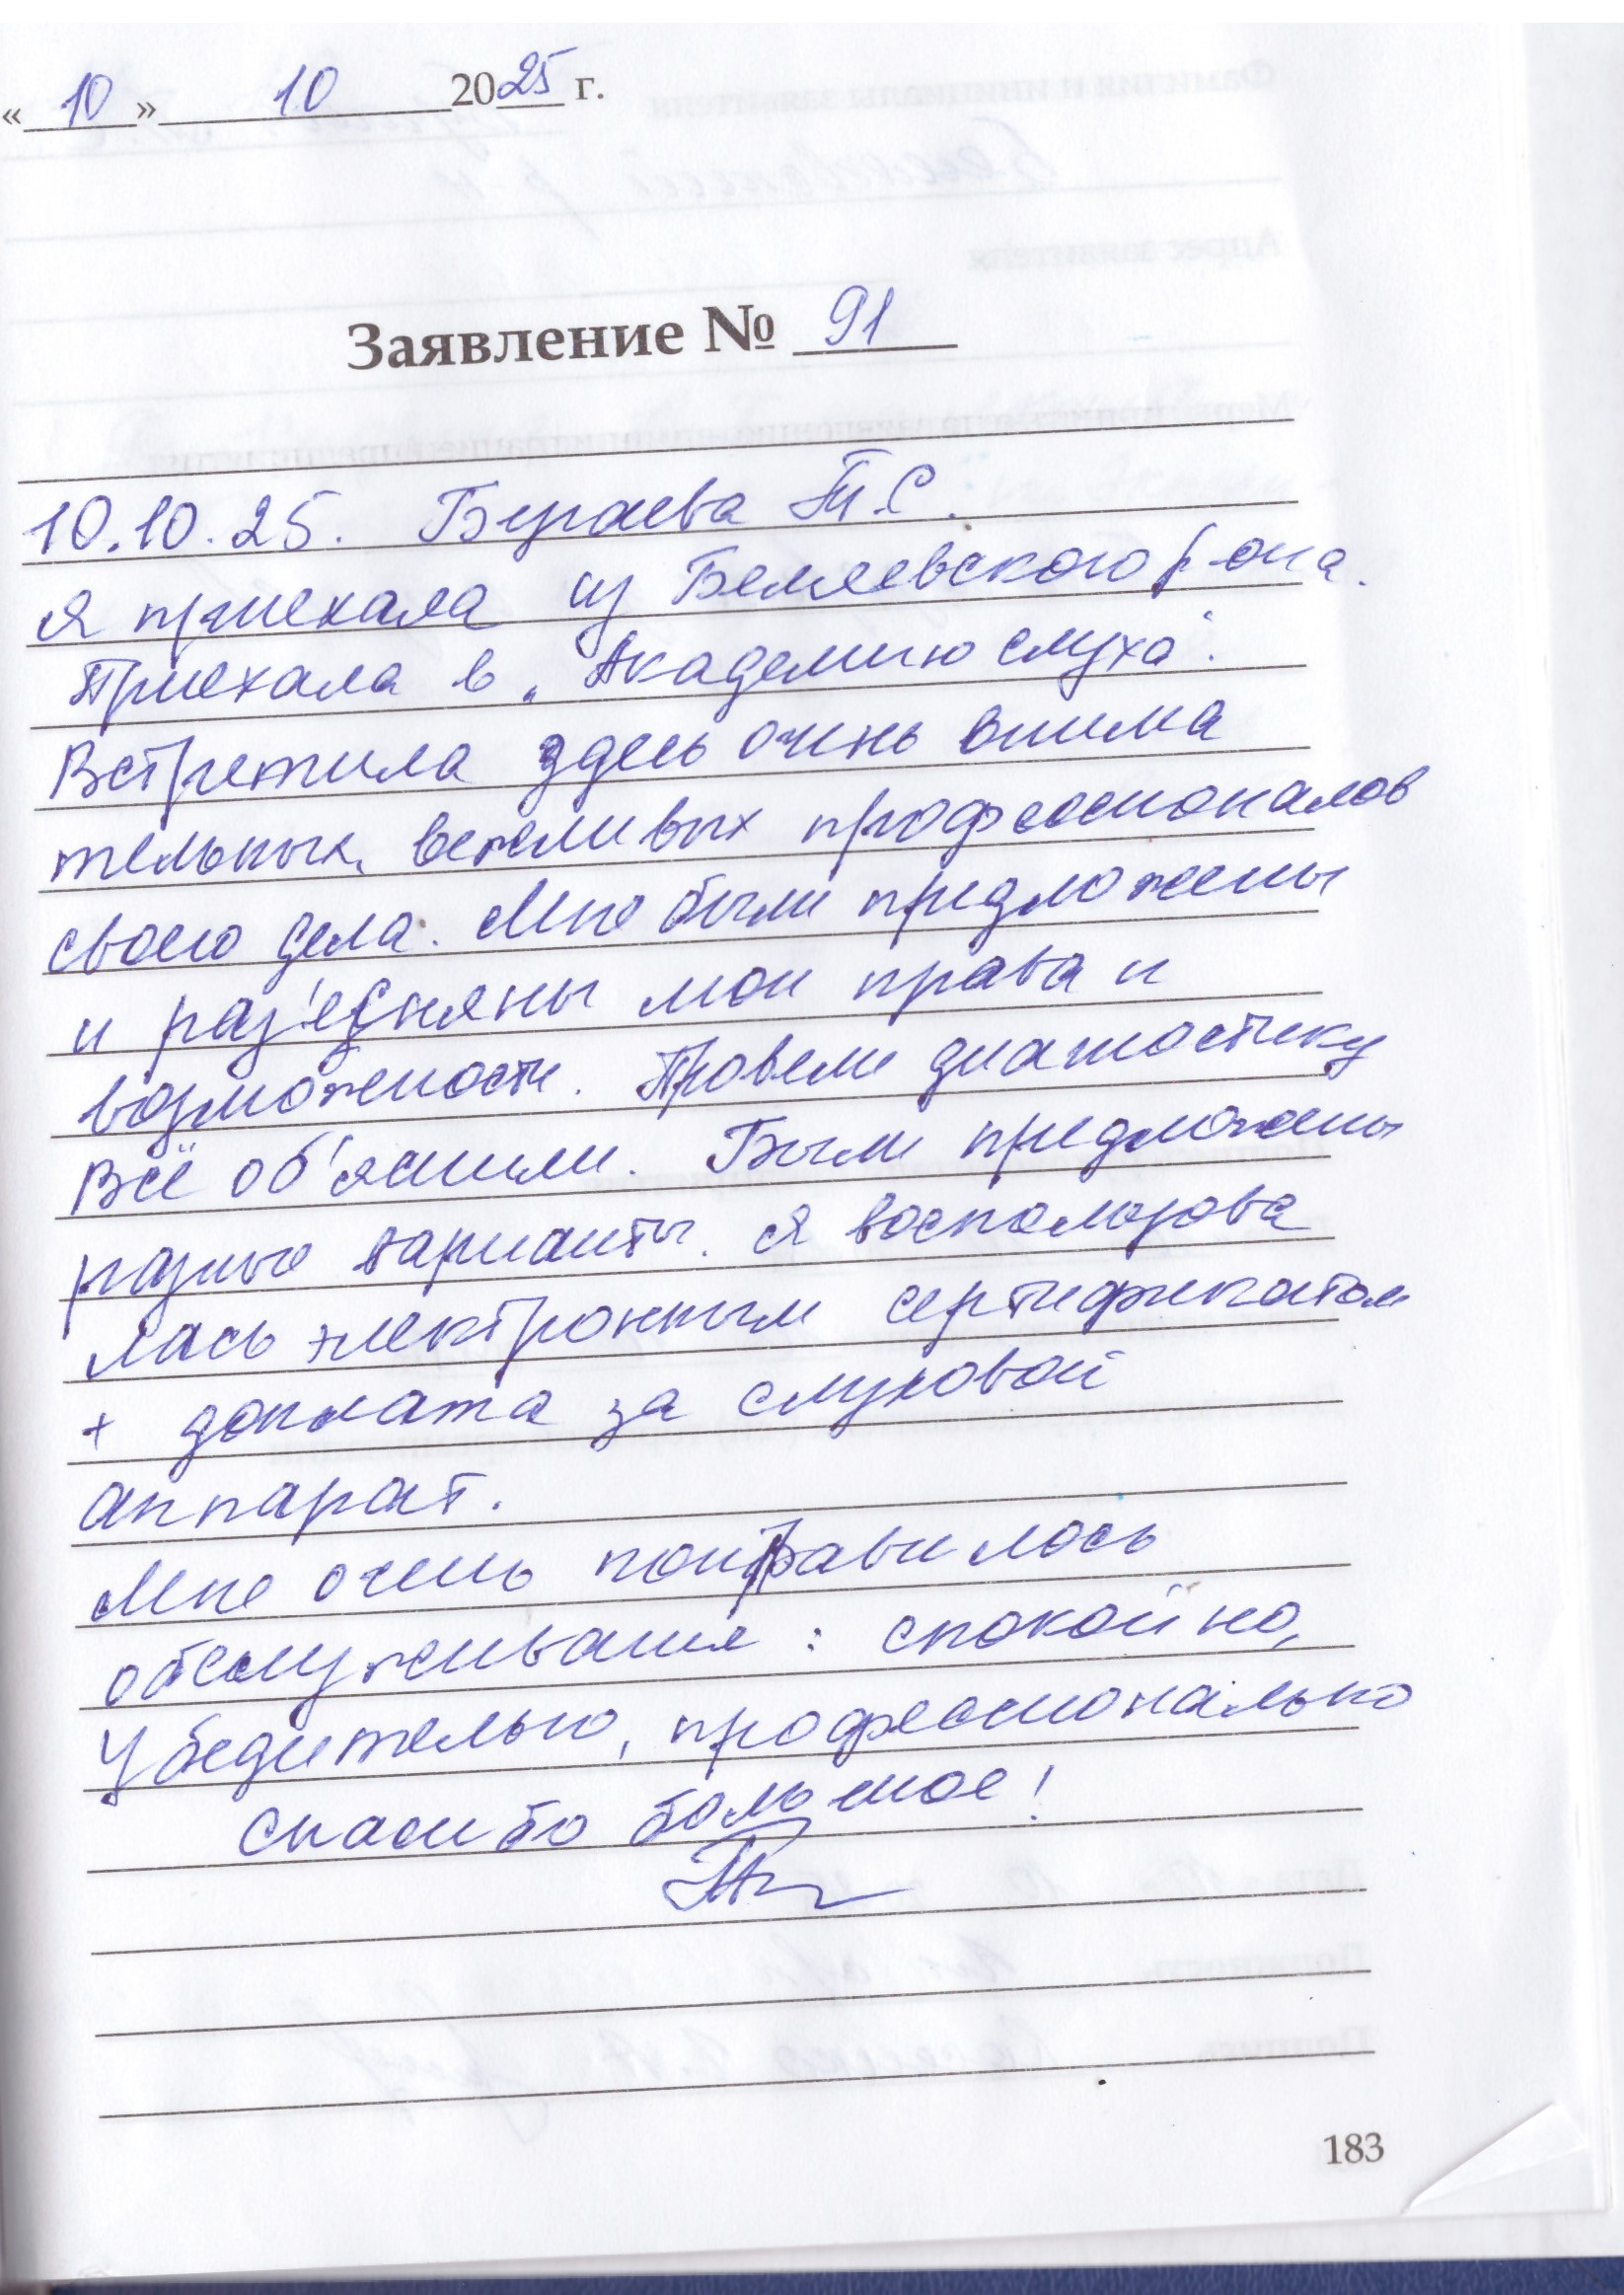 « 10 » 10 2025 г.
Заявление № 91
10.10.25. Бураева Т.С.
Я приехала из Беляевского р она.
Приехала в „Академию слуха".
Встретила здесь очень внима
тельных, вежливых профессионалов
своего дела. Мне были предложены
и раз'есняны мои права и
возможности. Провели диагностику
Всё об'яснили. Были предложены
разные варианты. Я воспользова
лась электронным сертификатом
+ доплата за слуховой
аппарат.
Мне очень понравилось
обслуживания : спокойно,
Убедительно, профессионально
Спасибо большое!
183